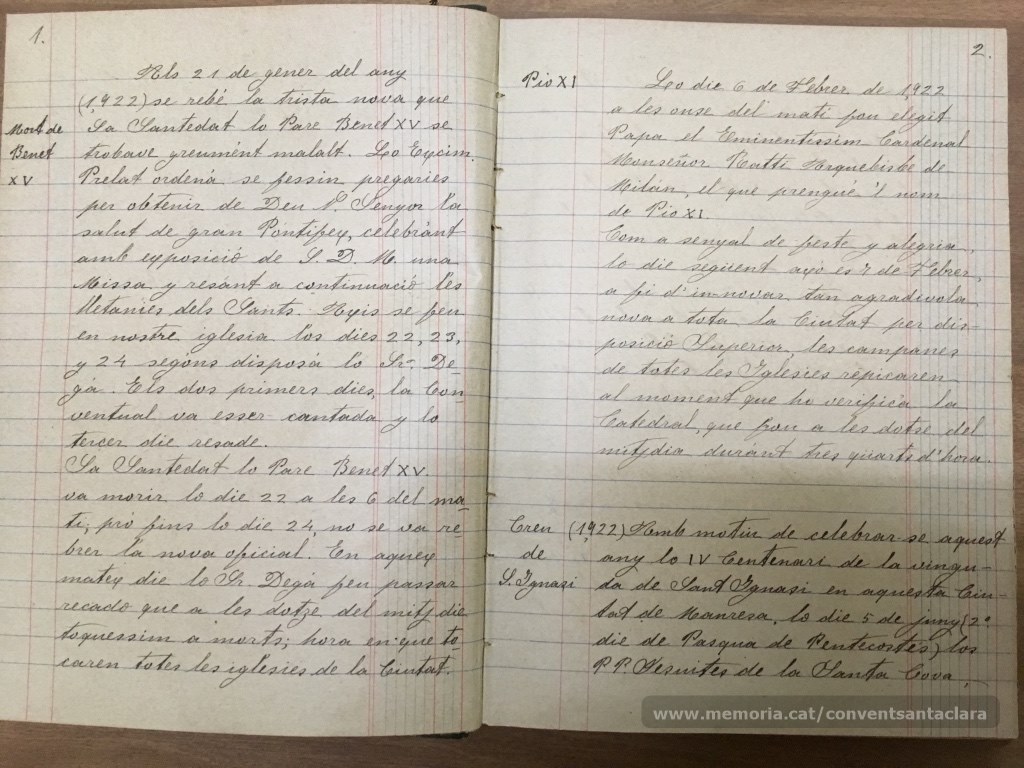 1.
Als 21 de gener del any
(1922) se rebé la trista nova que
Mort de
Benet
XV
Sa Santedat lo Pare Benet XV se
trobave greumént malalt. Lo Excim.
Prelat ordená se fessin pregaries
per obtenir de Deu N. Senyor la
salut de gran Pontifex, celebránt
amb exposició de S. D. M. una
Missa y resánt a continuació les
lletanies dels Sants. Axis se feu
en nostre iglesia los dies 22, 23,
y 24 segons disposá lo Sr. De-
gá. Els dos primers dies, la Con
ventual va esser cantada y lo
tercer die resade.
Sa Santedat lo Pare Benet XV.
va morir lo die 22 a les 6 del ma-
ti; pró fins lo die 24, no se va re-
brer la nova oficial. En aquex
matex die lo Sr. Degá feu passar
recado que a les dotze del mitj die
toquessim a morts; hora en que to-
caren totes les iglesies de la Ciutat.
2.
Pio XI
Lo die 6 de Febrer de 1922
a les onse del mati fou elegit
Papa el Eminentissim Cardenal
Monseñor Ratti Arquebisbe de
Milán, el que prengué 'l nom
de Pio XI.
Com a senyal de feste y alegria,
lo die següent axó es 7 de Febrer,
a fi d'innovar tan agradívola
nova a tota la Ciutat per dis-
posició Superior, les campanes
de totes les Iglesies repicaren
al moment que ho verifica la
Catedral, que fou a les dotse del
mitjdia durant tres quarts d'hora.
Creu
de
S. Ignasi
(1922) Amb motiu de celebrar se aquest
any lo IV Centenari de la vingu-
da de Sant Ignasi en aquesta Ciu-
tat de Manresa, lo die 5 de juny (2ª
die de Pasqua de Pentecostés) los
P.P. Jesuites de la Santa Cova,
www.memoria.cat/conventsantaclara